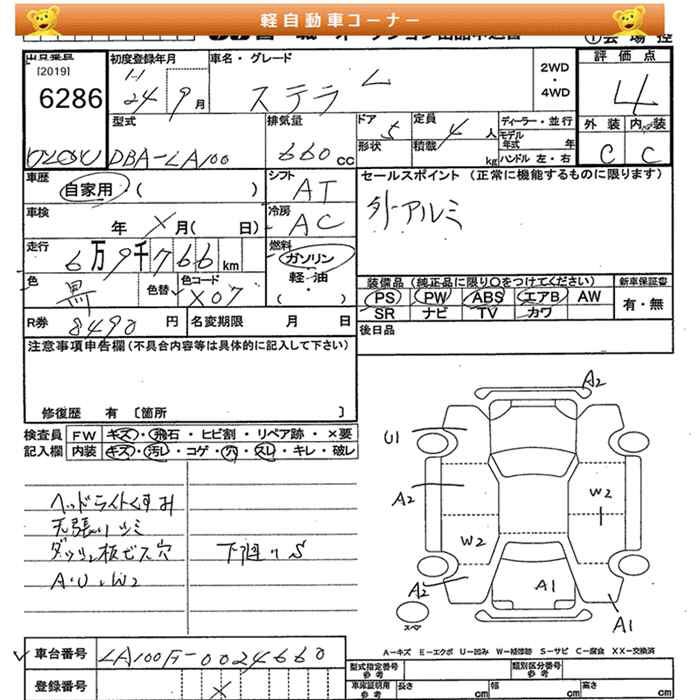 軽自動車コーナー
[2019]
6286
初度登録年月
24 9月
車名・グレード
ステラ L
2WD
・
4WD
評価点
4
外装 内装
C C
型式
DBA-LA100
排気量
660 cc
ドア 5
形状
定員 4 人
積載 kg
ディーラー・並行
モデル年式 年
ハンドル 左・右
車歴
自家用 ( )
シフト
AT
セールスポイント (正常に機能するものに限ります)
外アルミ
車検
年 X 月( 日)
冷房
AC
走行
6万9千766km
燃料
ガソリン
軽・油
・( )
色
黒
色替
色コード
X07
装備品 (純正品に限り〇をつけてください)
新車保証書
PS PW ABS エアB AW
SR ナビ TV カワ
有・無
R券 8490 円
名変期限 月 日
後日品
注意事項申告欄(不具合内容等は具体的に記入して下さい)
修復歴 有 [箇所 ]
検査員
記入欄
FW キズ・飛石・ヒビ割・リペア跡・×要
内装 キズ・汚レ・コゲ・穴・スレ・キレ・破レ
ヘッドライトくすみ
天張りシミ
ダッシュ板ビス穴
下廻りS
A・U・W2
A2
U1
A2
W2
W2
A2
A1
A1
スペア
A-キズ E-エクボ U-凹み W-補修跡 S-サビ C-腐食 XX-交換済
車台番号
LA100F-0024660
登録番号
X
型式指定番号
参考
類別区分番号
参考
車庫証明用
参考
長さ cm
幅 cm
高さ cm